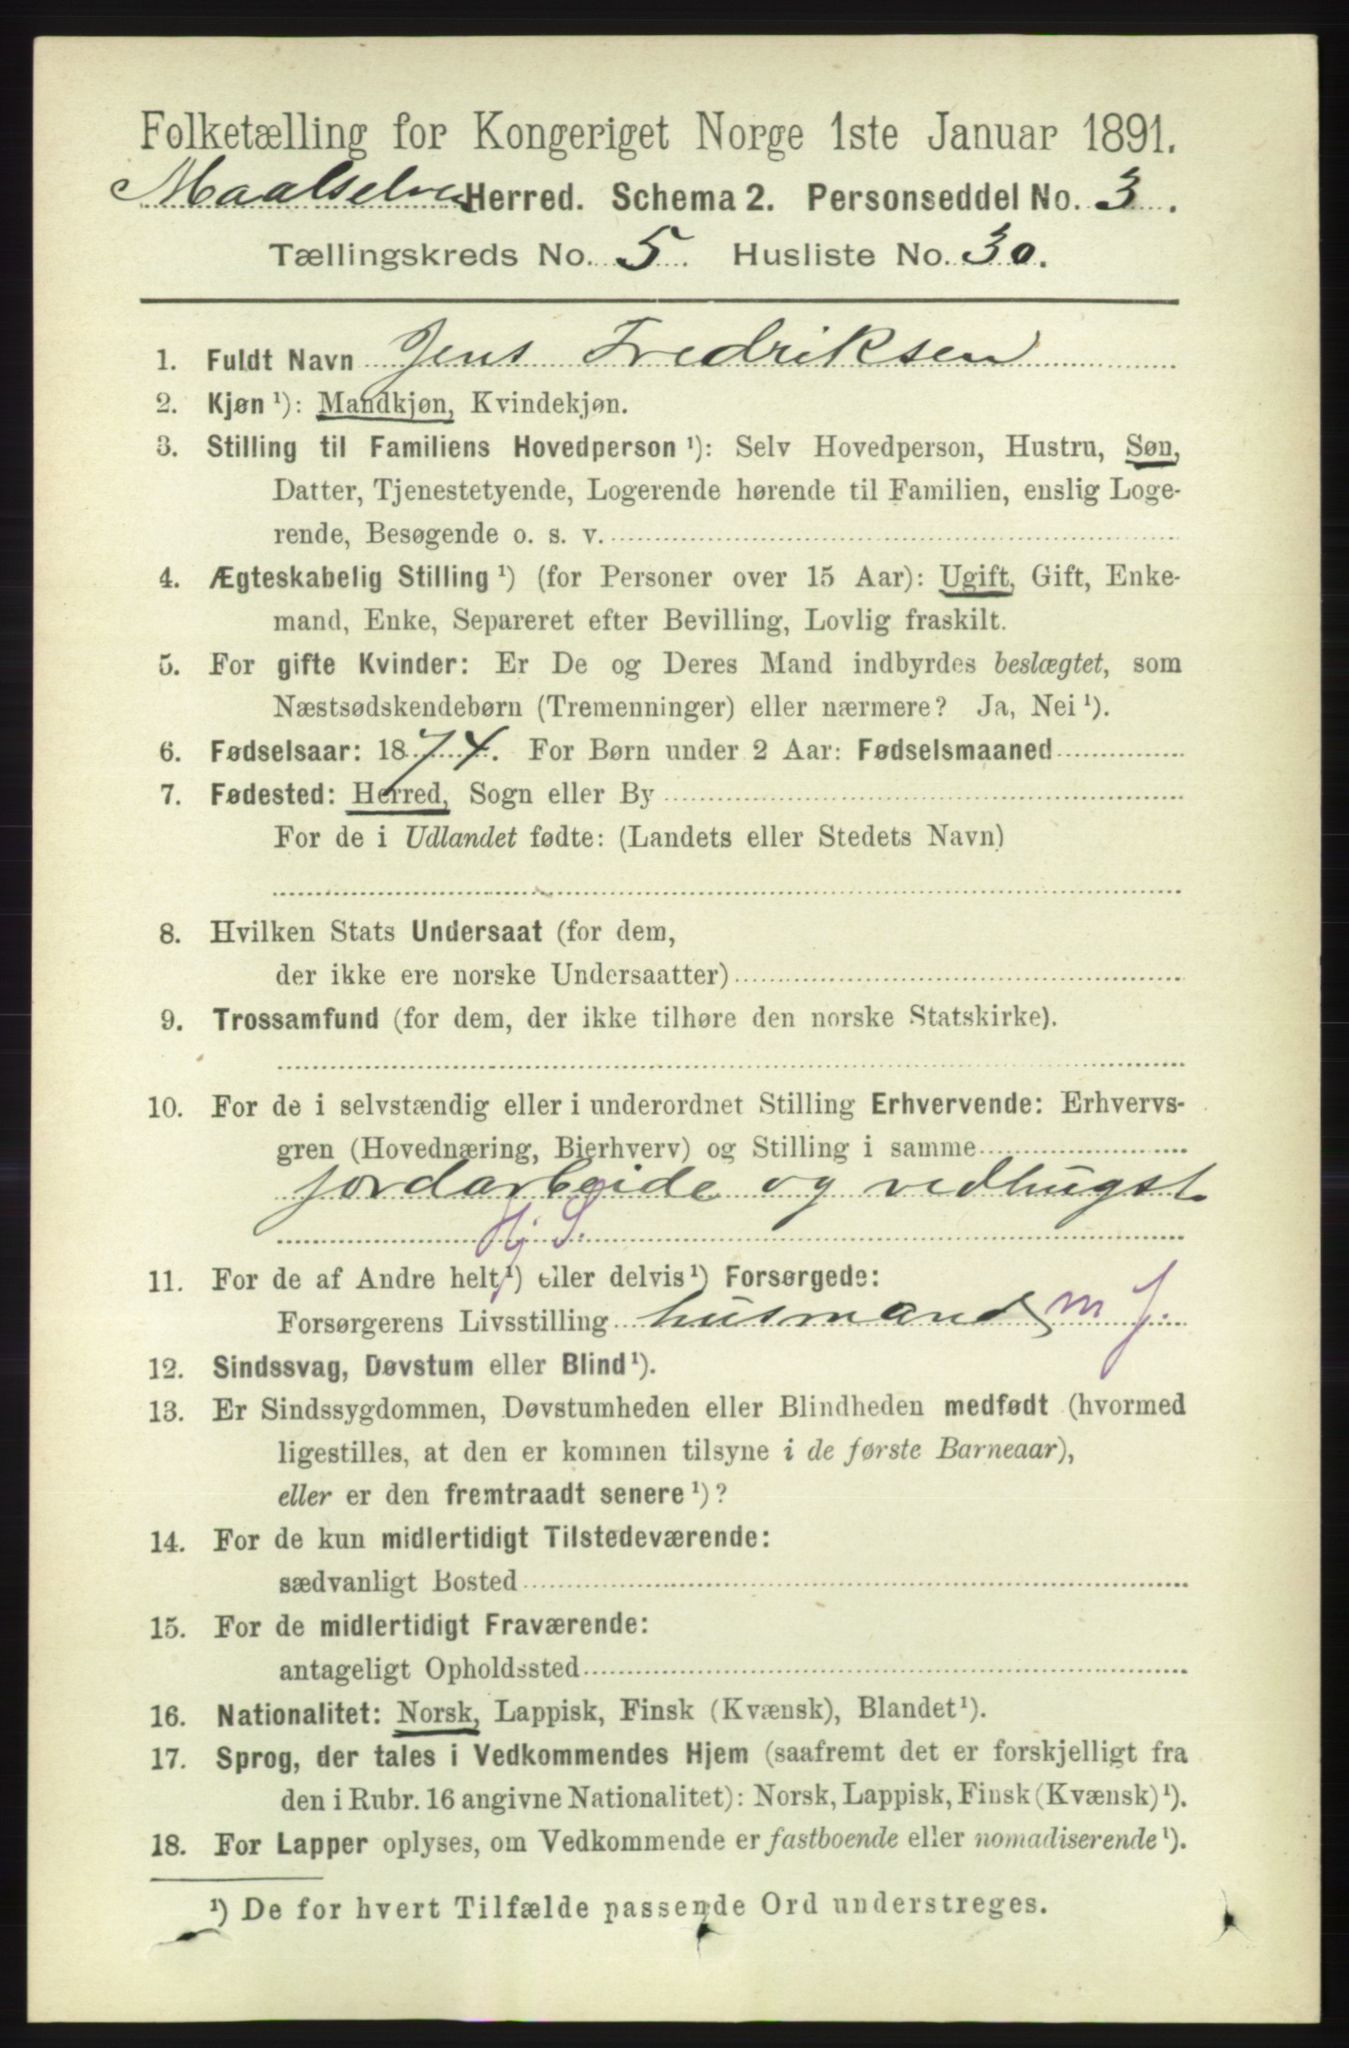 Folketælling for Kongeriget Norge 1ste Januar 1891.
Maalselven Herred. Schema 2. Personseddel No. 3.
Tællingskreds No. 5. Husliste No. 30.
1. Fuldt Navn Jens Fredriksen
2. Kjøn ¹): Mandkjøn, Kvindekjøn.
3. Stilling til Familiens Hovedperson ¹): Selv Hovedperson, Hustru, Søn,
Datter, Tjenestetyende, Logerende hørende til Familien, enslig Loge-
rende, Besøgende o. s. v.
4. Ægteskabelig Stilling ¹) (for Personer over 15 Aar): Ugift, Gift, Enke-
mand, Enke, Separeret efter Bevilling, Lovlig fraskilt.
5. For gifte Kvinder: Er De og Deres Mand indbyrdes beslægtet, som
Næstsødskendebørn (Tremenninger) eller nærmere? Ja, Nei ¹).
6. Fødselsaar: 1874. For Børn under 2 Aar: Fødselsmaaned
7. Fødested: Herred, Sogn eller By
For de i Udlandet fødte: (Landets eller Stedets Navn)
8. Hvilken Stats Undersaat (for dem,
der ikke ere norske Undersaatter)
9. Trossamfund (for dem, der ikke tilhøre den norske Statskirke).
10. For de i selvstændig eller i underordnet Stilling Erhvervende: Erhvervs-
gren (Hovednæring, Bierhverv) og Stilling i samme
jordarbeide og vedhugst
Hj S.
11. For de af Andre helt ¹) eller delvis ¹) Forsørgede:
Forsørgerens Livsstilling husmand m J.
12. Sindssvag, Døvstum eller Blind ¹).
13. Er Sindssygdommen, Døvstumheden eller Blindheden medfødt (hvormed
ligestilles, at den er kommen tilsyne i de første Barneaar),
eller er den fremtraadt senere ¹)?
14. For de kun midlertidigt Tilstedeværende:
sædvanligt Bosted
15. For de midlertidigt Fraværende:
antageligt Opholdssted
16. Nationalitet: Norsk, Lappisk, Finsk (Kvænsk), Blandet ¹).
17. Sprog, der tales i Vedkommendes Hjem (saafremt det er forskjelligt fra
den i Rubr. 16 angivne Nationalitet): Norsk, Lappisk, Finsk (Kvænsk) ¹).
18. For Lapper oplyses, om Vedkommende er fastboende eller nomadiserende ¹).
¹) De for hvert Tilfælde passende Ord understreges.